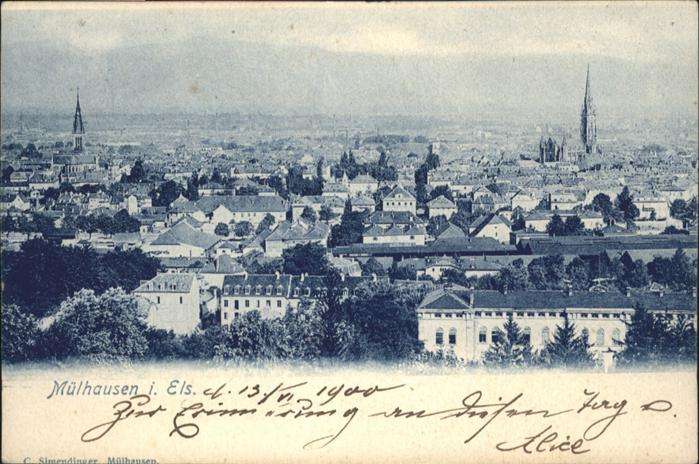 Mülhausen i. Els. d. 13/VI 1900
Zur Erinnerung an diesen Tag
Alice
C. Simendinger, Mülhausen.